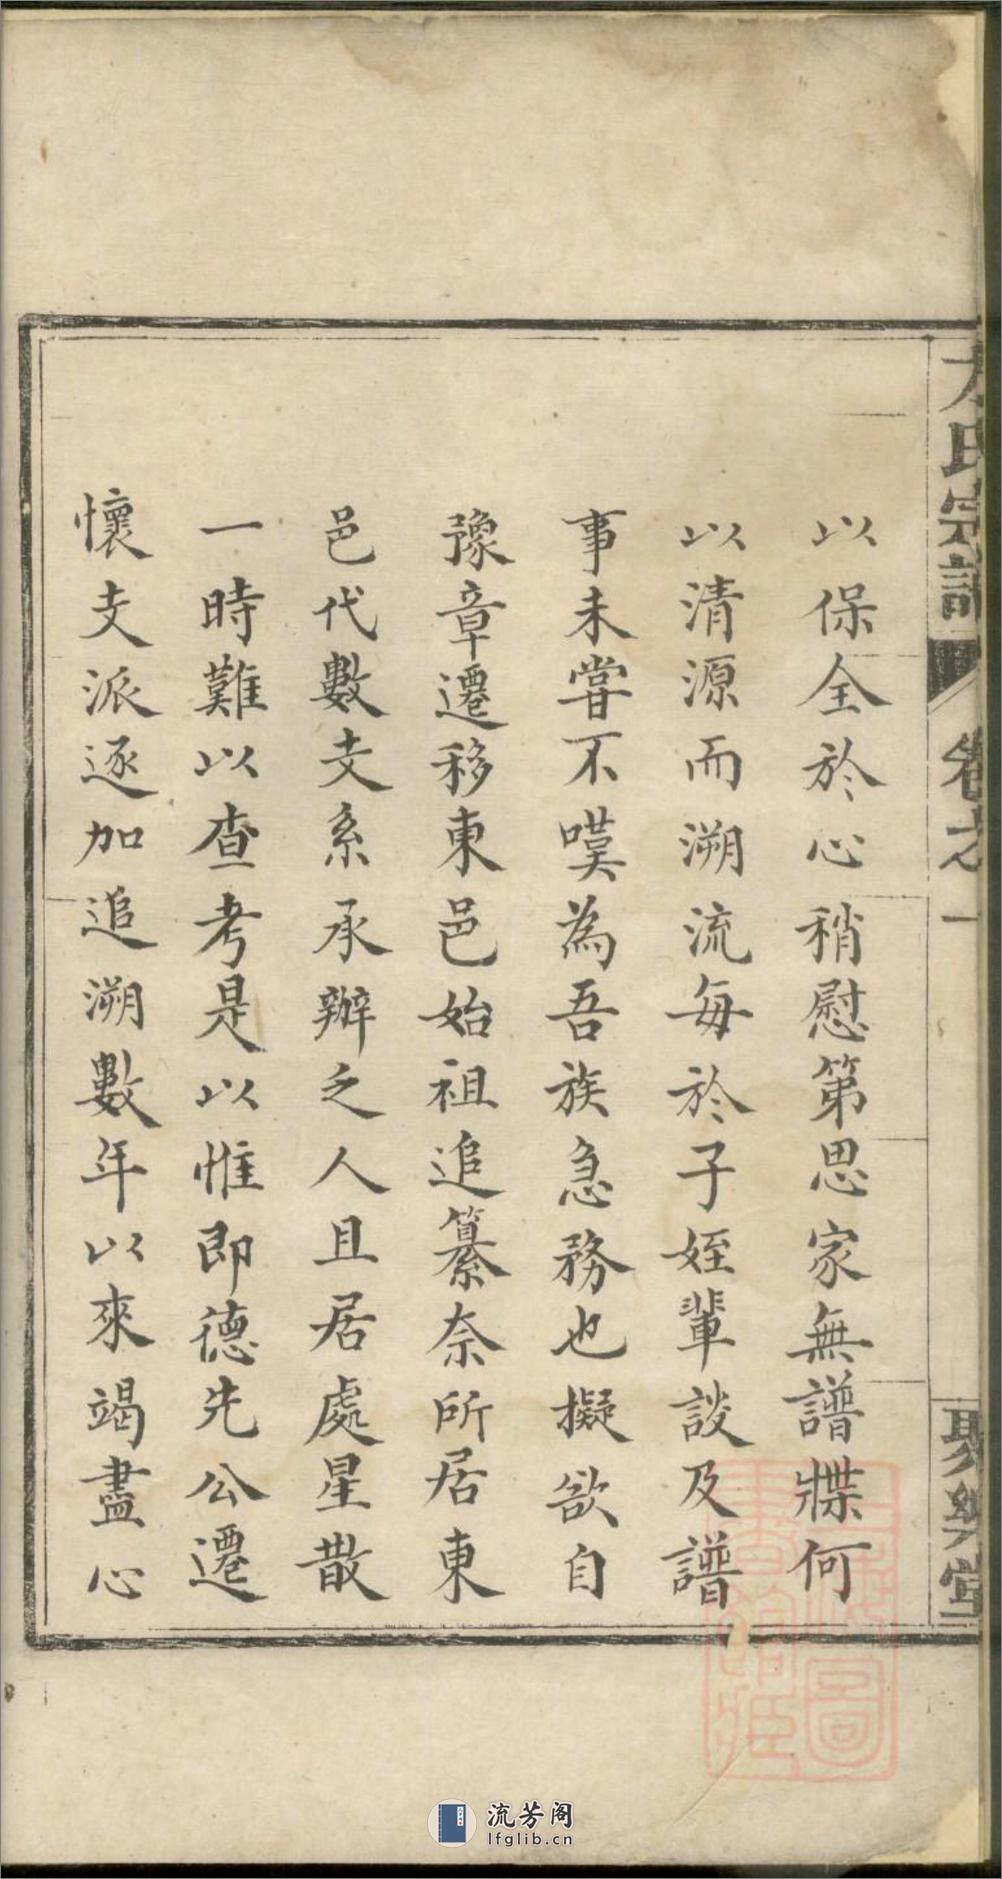 方氏宗譜
卷之一
聚樂堂
以保全於心稍慰第思家無譜牒何
以清源而溯流每於子姪輩談及譜
事未嘗不嘆為吾族急務也擬欲自
豫章遷移東邑始祖追纂奈所居東
邑代數支系承辦之人且居處星散
一時難以查考是以惟即德先公遷
懷支派逐加追溯數年以來竭盡心
流芳阁
lfglib.cn